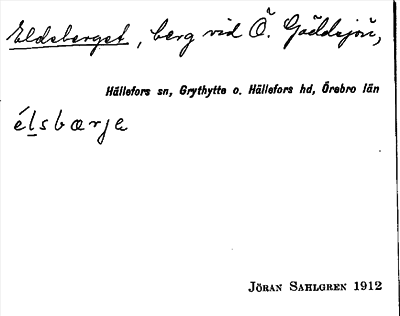 Eldsberget, berg vid Ö. Gäddsjön,
Hällefors sn, Grythytte o. Hällefors hd, Örebro län
élsbærje
JÖRAN SAHLGREN 1912